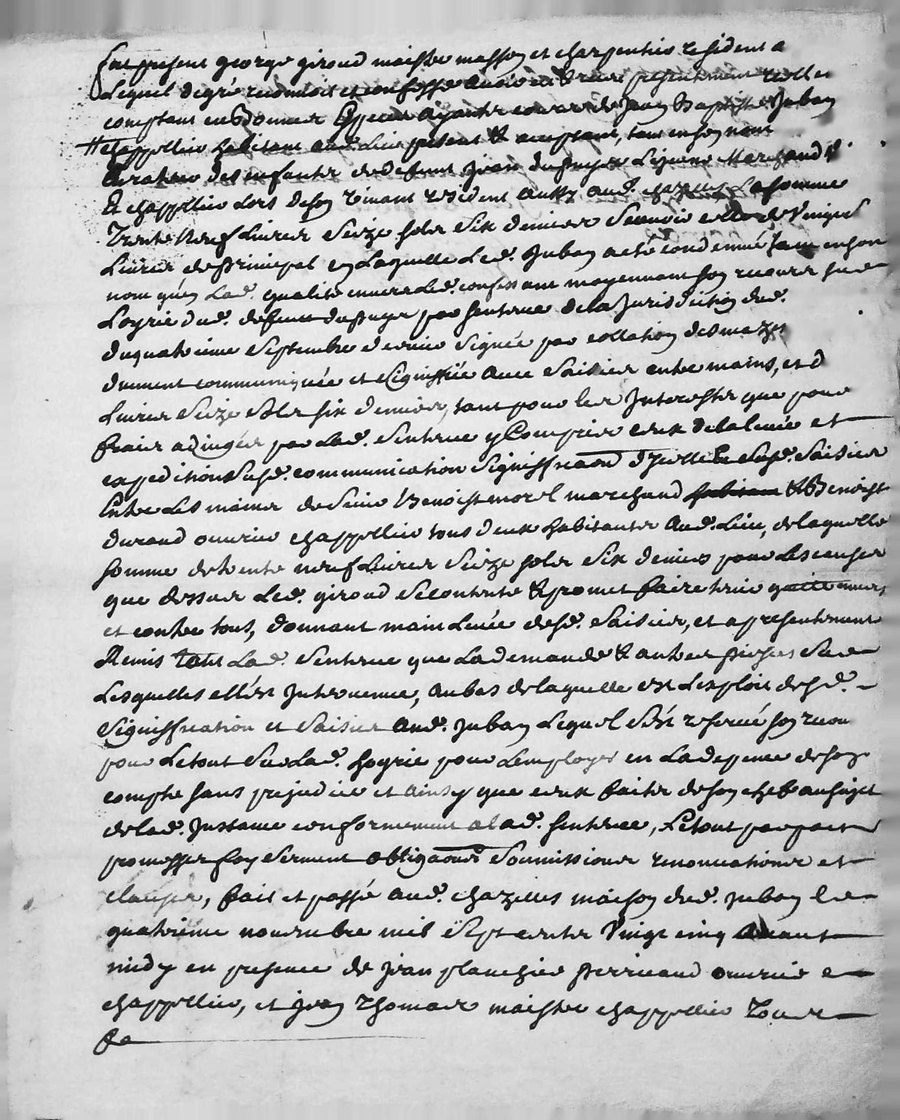 Fut present george giroud maistre masson et charpentier resident a
Lequel de gré reconnoit et confesse avoir et receu presentement reelle
comptant en bonnes Especes ayants cours de Jean Baptiste Juban
chappellier habitant aud. Lieu present & acceptant, tant en son nom
Curateur des enfants de defunt Jean dupuys Lejeune Marchand
& chappellier Lors de son vivant resident aussy aud. chazelles La somme
Trente neuf Livres Seize sols Six deniers Scavoir celle de Vingt
Livres de principal en Laquelle Led. Juban a eté condemné tant en son
nom qu'en Lad. qualité envers Led. confessant moyennant son recours sur
L'oyrie dud. deffunt dupuys par sentence de la Jurisdiction dud.
du quatrieme Septembre dernier Signée par collation desmazes
dument communiquée et Signiffiée avec Saisies entre mains, et d
Livres Seize Sols six deniers, tant pour les Interests que pour
frais adjugés par Lad. Sentence y Compris ceux de la levée et
expedition Susd. communication Signiffication d'Icelle & Susd. Saisies
Entre Les mains de Sieur Benoist morel marchand & Benoist
durand ouvrier chappellier tous deux habitants aud. Lieu, de laquelle
somme de trente neuf Livres Seize sols Six deniers pour Les causes
que dessus Led. giroud Se contente & promet faire tenir quitte envers
et contre tous, donnant main Levée desd. Saisies, et a presentement
Remis tant Lad. Sentence que La demande & autres pieces Sur
Lesquelles elle est Intervenue, au bas de laquelle est L'exploit desd.
Signiffication et Saisies aud. Juban Lequel s'est reservé son recours
pour Le tout Sur Lad. hoyrie pour L'employer en La depence de son
compte sans prejudice et ainsy que ceux faits de son chef au sujet
de lad. Instance conformement a lad. sentence, Le tout par pact
promesses foy serment obligations Soumissions renonciations et
clauses, fait et passé aud. chazelles maison dud. Juban le
quatrieme novembre mil Sept cents Vingt cinq avant
midy en presence de Jean planchier perricaud ouvrier
chappellier, et Jean thomas maistre chappellier Tous